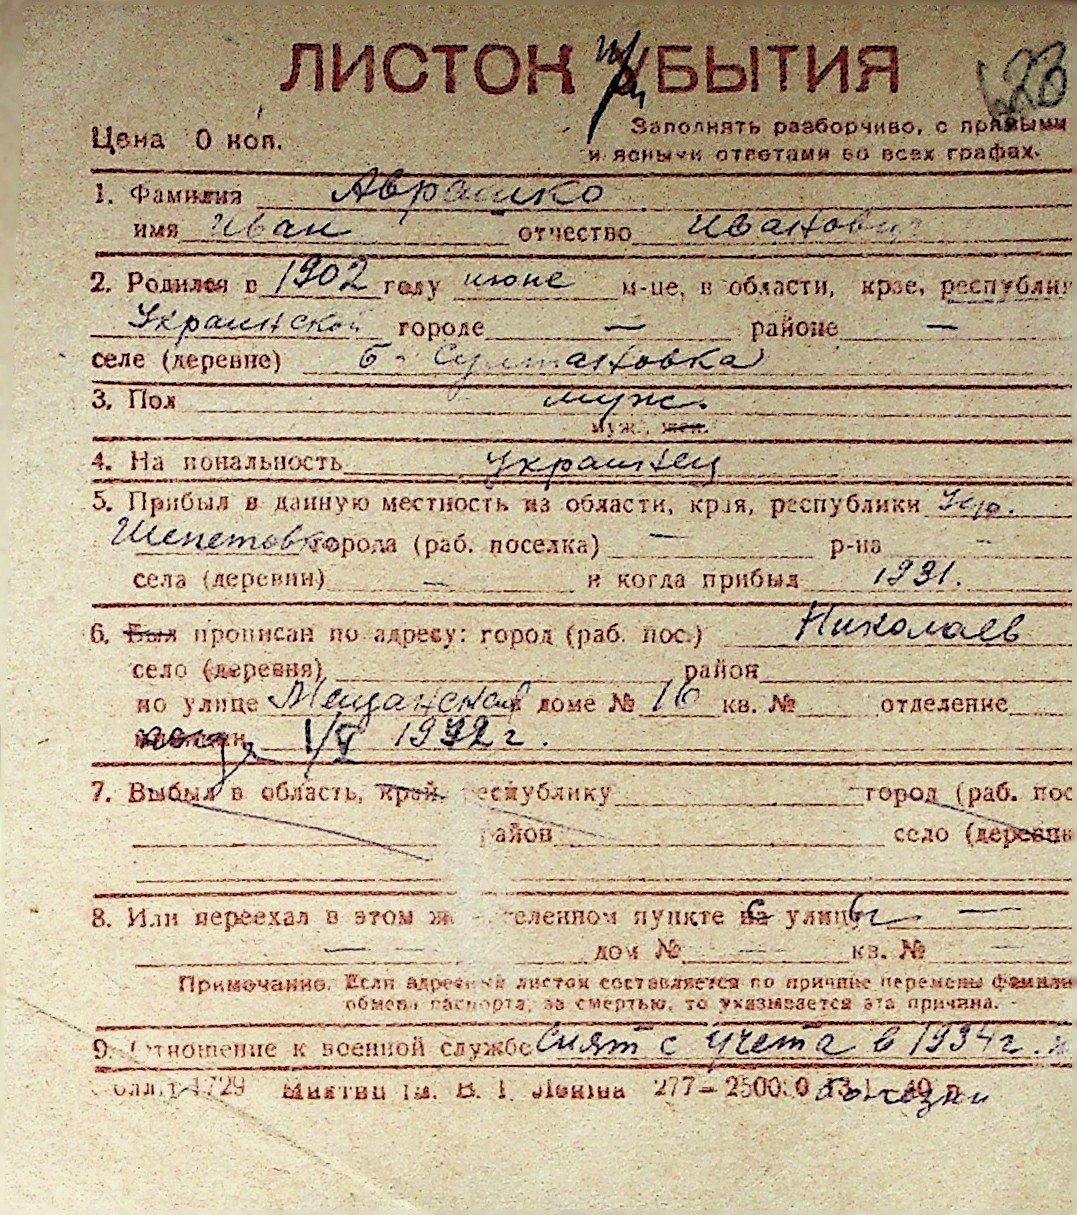 ЛИСТОК УБЫТИЯ
Цена 0 коп.
Заполнять разборчиво, с прямыми
и ясными ответами во всех графах.
1. Фамилия Аврашко
имя Иван отчество Иванович
2. Родился в 1902 году июне м-це, в области, крае, республик
Украинской городе — районе —
селе (деревне) Султановка
3. Пол муж.
муж., жен.
4. Национальность украинец
5. Прибыл в данную местность из области, края, республики Укр.
Шепетовка города (раб. поселка) — р-на —
села (деревни) — и когда прибыл 1931.
6. Был прописан по адресу: город (раб. пос.) Николаев
село (деревня) район
по улице Мещанская доме № 16 кв. № отделение
милиции 1/V 1942 г.
7. Выбыл в область, край, республику город (раб. пос
район село (деревн
8. Или переехал в этом же населенном пункте с улицы —
— — дом № — кв. № —
Примечание. Если адресный листок составляется по причине перемены фамили
обмена паспорта, за смертью, то указывается эта причина.
9. Отношение к военной службе Снят с учета в 1934 г.
болезни